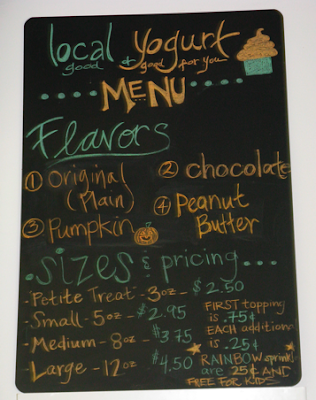 local + Yogurt
good good for you
MENU
Flavors
① Original (Plain)
② chocolate
③ Pumpkin
④ Peanut Butter
sizes & pricing...
-Petite Treat - 3oz - $2.50
-Small - 5oz - $2.95
-Medium - 8oz - $3.75
-Large - 12oz $4.50
FIRST topping
is .75¢
EACH addition
is .25¢
RAINBOW sprinkl
are 25¢ AND
FREE FOR KIDS